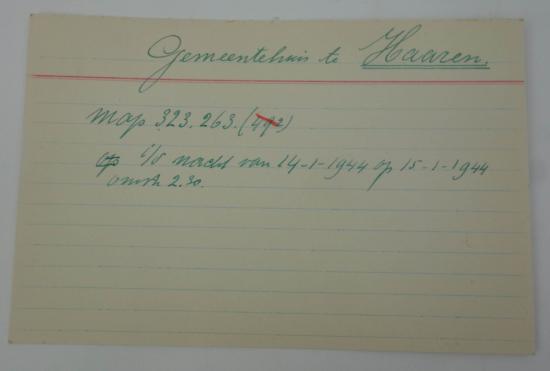 Gemeentehuis te Haaren.
map 323.263.(492)
op i/d nacht van 14-1-1944 op 15-1-1944
omstr 2.30.